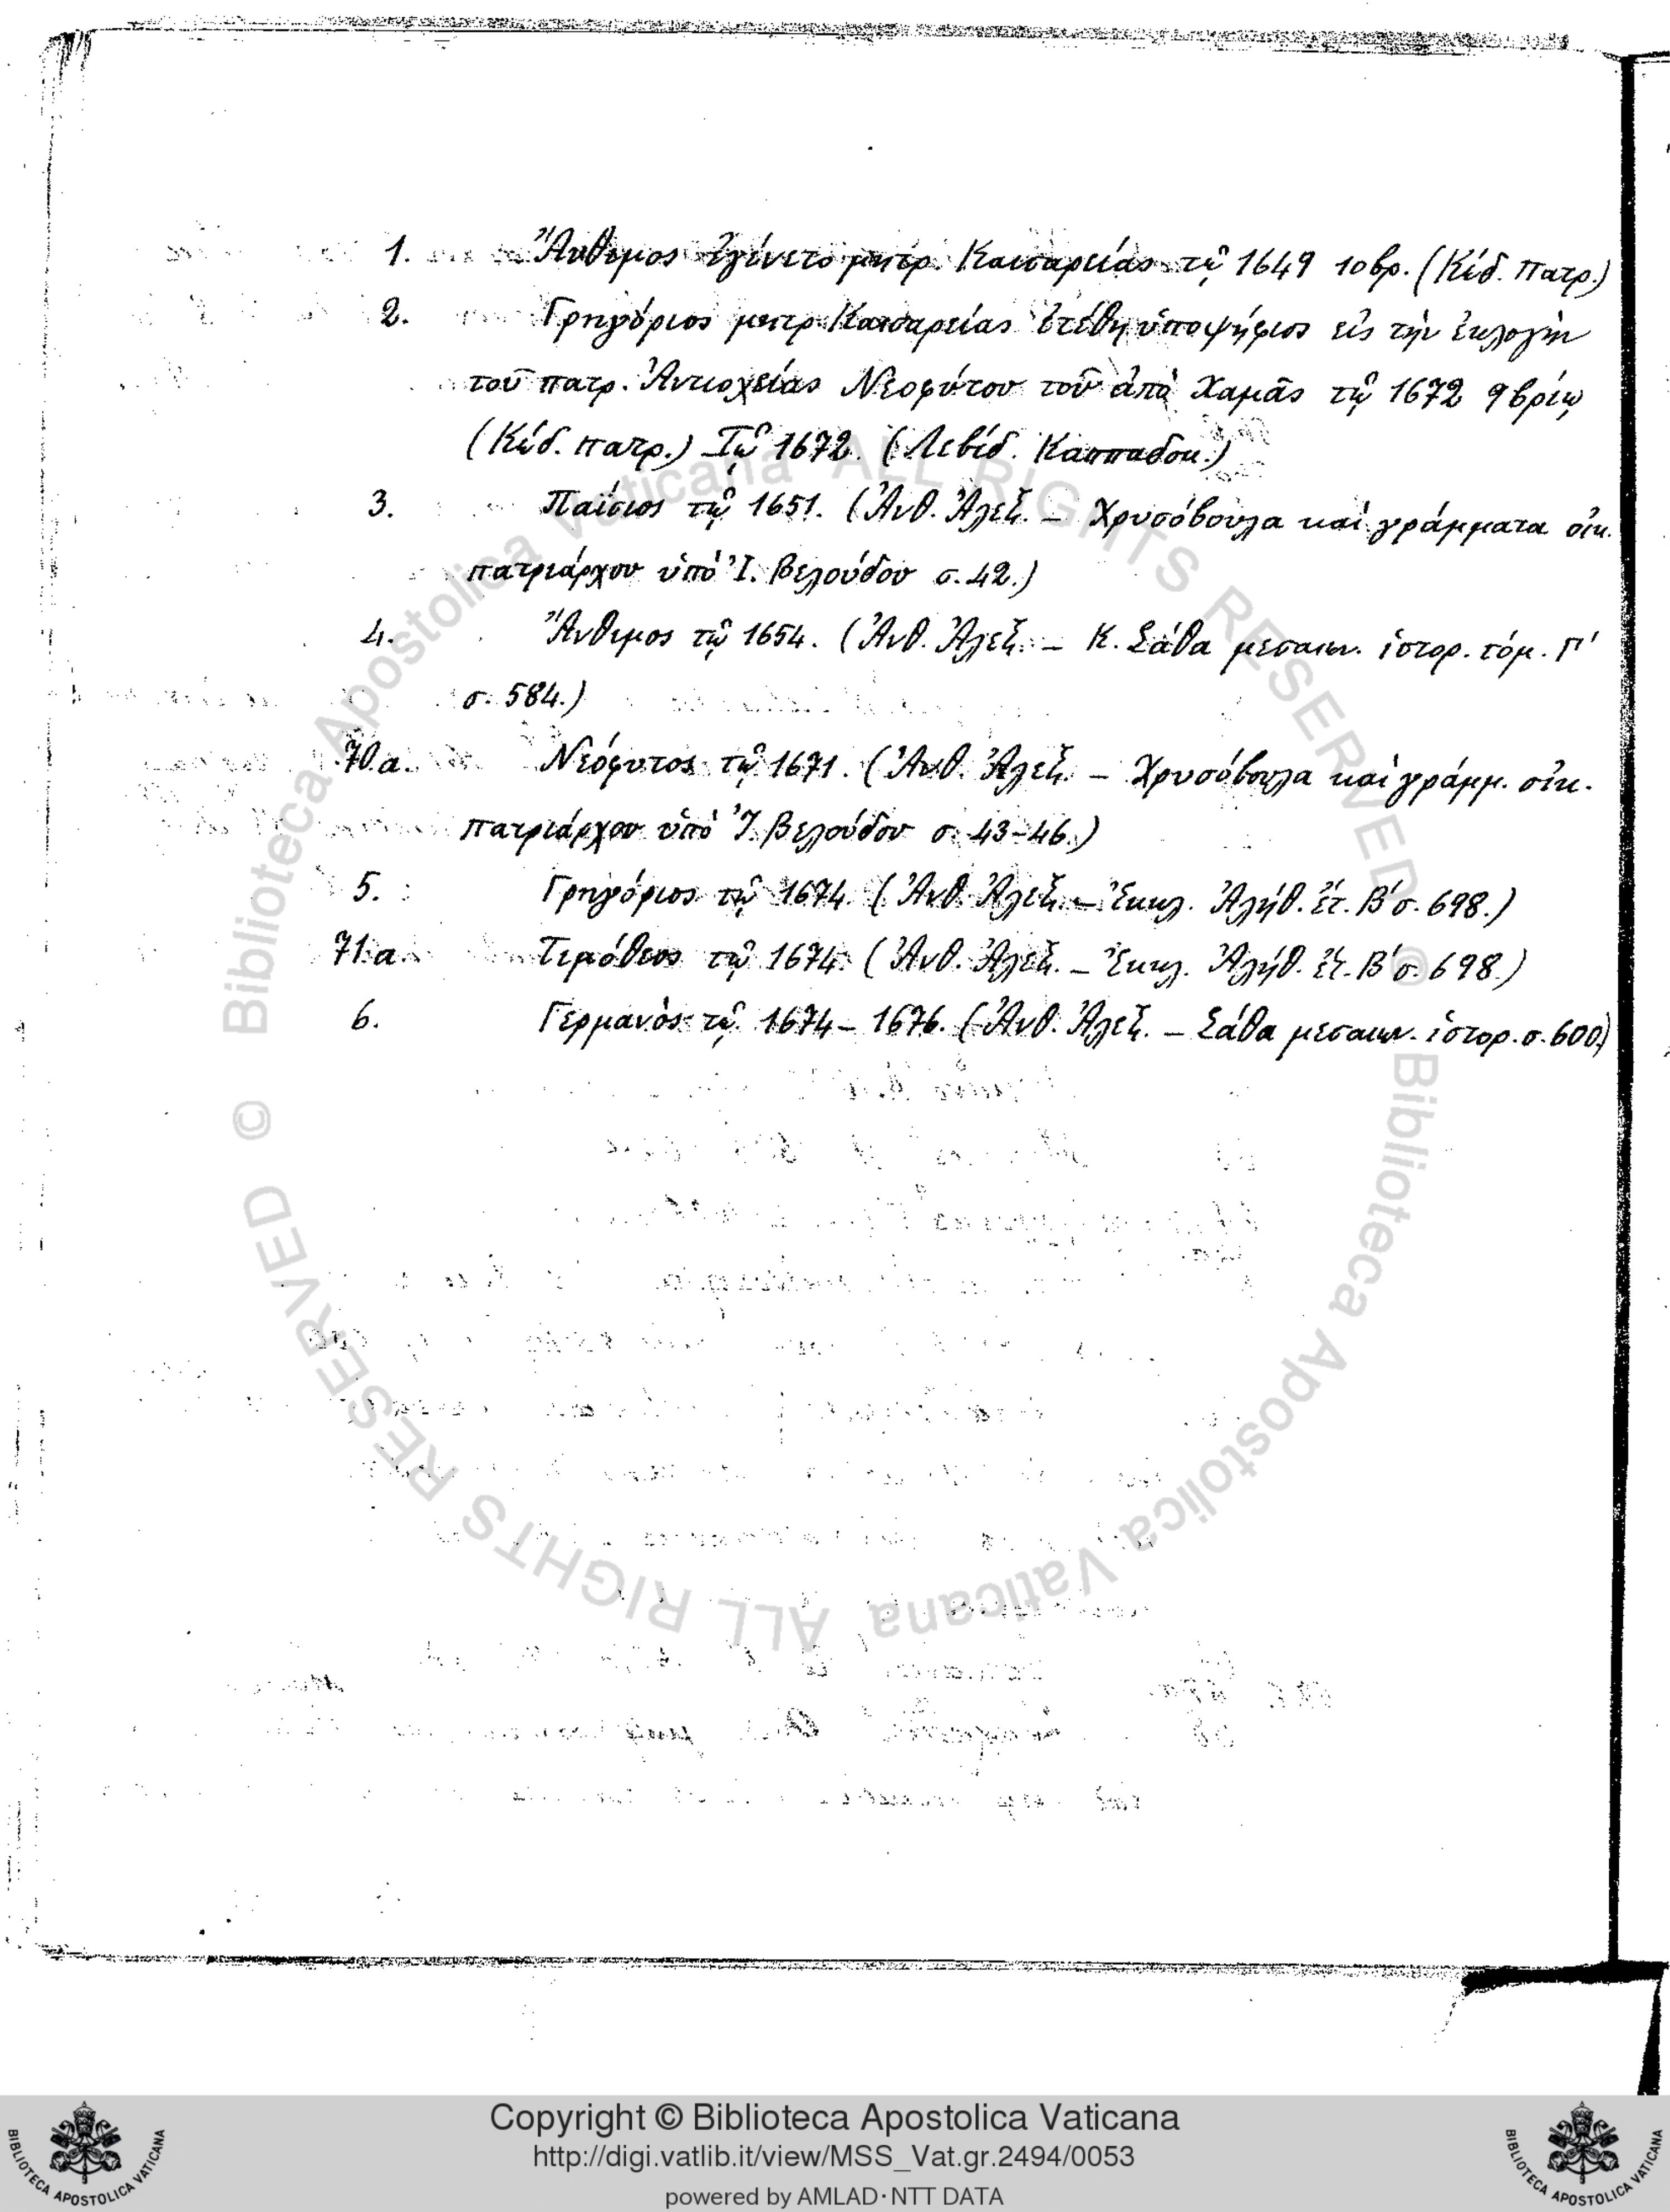 1. Ἄνθιμος ἐγένετο μητρ. Καισαρείας τῷ 1649 10βρ. (Κώδ. πατρ.)
2. Γρηγόριος μητρ. Καισαρείας ἐτέθη ὑποψήφιος εἰς τὴν ἐκλογὴν
τοῦ πατρ. Ἀντιοχείας Νεοφύτου τοῦ ἀπὸ Χαμᾶς τῷ 1672 9βρίῳ
(Κώδ. πατρ.) Τῷ 1672. (Λεβίδ. Καππαδοκ.)
3. Παΐσιος τῷ 1651. (Ἀνθ. Ἀλεξ. – Χρυσόβουλα καὶ γράμματα οἰκ.
πατριάρχου ὑπὸ Ἰ. Βελούδου σ. 42.)
4. Ἄνθιμος τῷ 1654. (Ἀνθ. Ἀλεξ. – Κ. Σάθα μεσαιων. ἱστορ. τόμ. Γ'
σ. 584.)
70.α. Νεόφυτος τῷ 1671. (Ἀνθ. Ἀλεξ. – Χρυσόβουλα καὶ γράμμ. οἰκ.
πατριάρχου ὑπὸ Ἰ. Βελούδου σ. 43–46.)
5. Γρηγόριος τῷ 1674. (Ἀνθ. Ἀλεξ. – Ἐκκλ. Ἀλήθ. ἔτ. Β' σ. 698.)
71.α Τιμόθεος τῷ 1674. (Ἀνθ. Ἀλεξ. – Ἐκκλ. Ἀλήθ. ἔτ. Β' σ. 698.)
6. Γερμανὸς τῷ 1674–1676. (Ἀνθ. Ἀλεξ. – Σάθα μεσαιων. ἱστορ. σ. 600.)
© Biblioteca Apostolica Vaticana ALL RIGHTS RESERVED © Biblioteca Apostolica Vaticana ALL RIGHTS RESERVED
BIBLIOTECA APOSTOLICA VATICANA
Copyright © Biblioteca Apostolica Vaticana
http://digi.vatlib.it/view/MSS_Vat.gr.2494/0053
powered by AMLAD·NTT DATA
BIBLIOTECA APOSTOLICA VATICANA